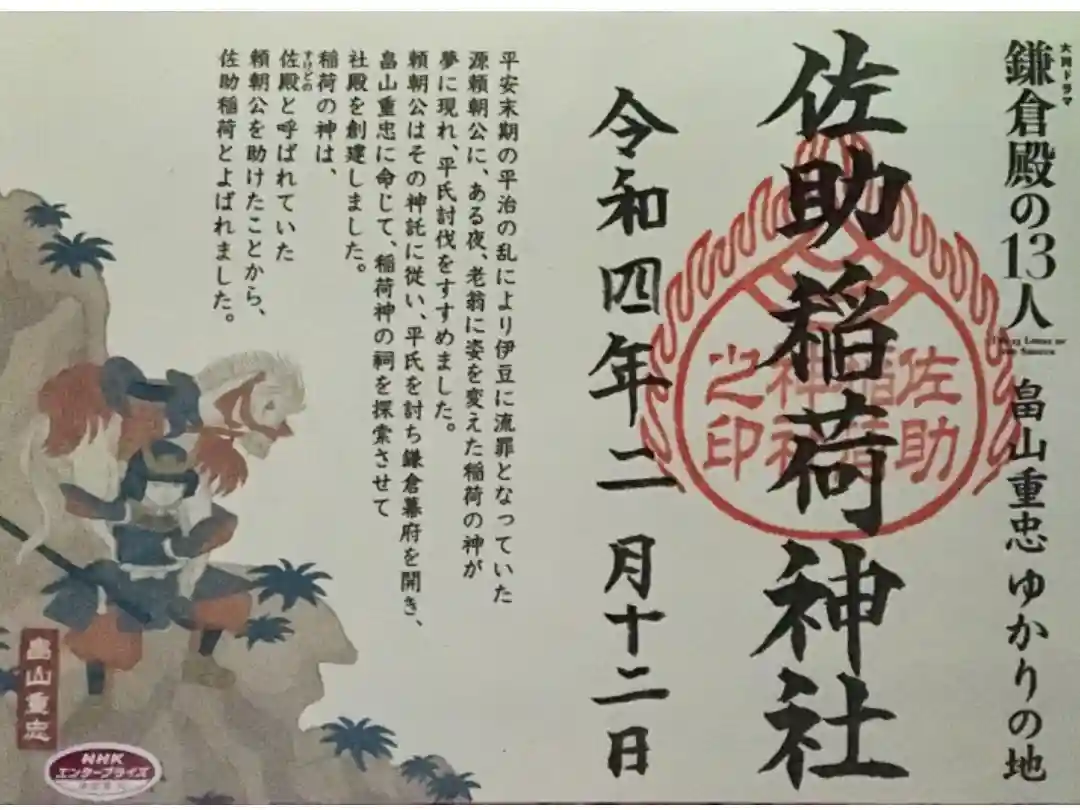 大河ドラマ
鎌倉殿の13人
畠山重忠 ゆかりの地
佐助稲荷神社
佐助
之印
令和四年二月十二日
平安末期の平治の乱により伊豆に流罪となっていた
源頼朝公に、ある夜、老翁に姿を変えた稲荷の神が
夢に現れ、平氏討伐をすすめました。
頼朝公はその神託に従い、平氏を討ち鎌倉幕府を開き、
畠山重忠に命じて、稲荷神の祠を探索させて
社殿を創建しました。
稲荷の神は、
すけどの
佐殿と呼ばれていた
頼朝公を助けたことから、
佐助稲荷とよばれました。
畠山重忠
NHK
エンタープライズ